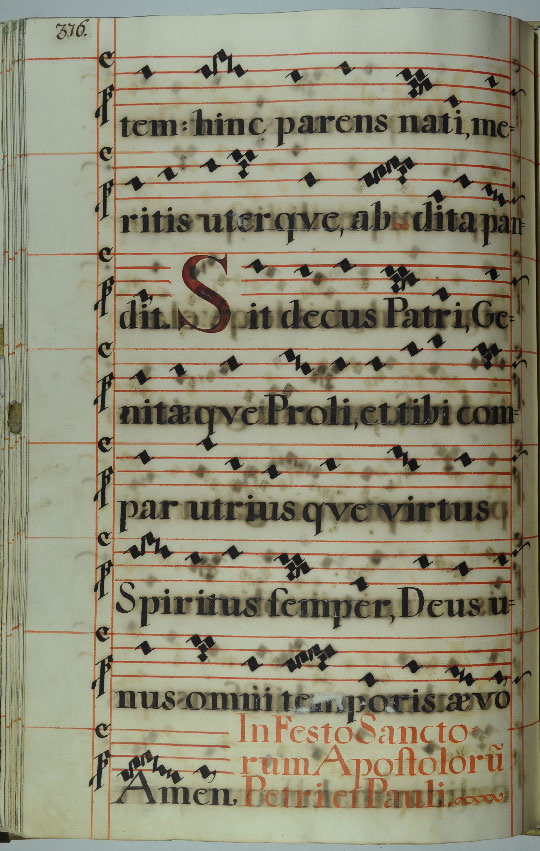 376.
tem: hinc parens nati, me-
ritis uterqve, ab dita pan-
dit. Sit decus Patri, Ge-
nitæqve Proli, et tibi com-
par utriusqve virtus
Spiritus semper, Deus u-
nus omni temporis ævo
In Festo Sancto
rum Apostolorũ
Amen. Petri et Pauli.